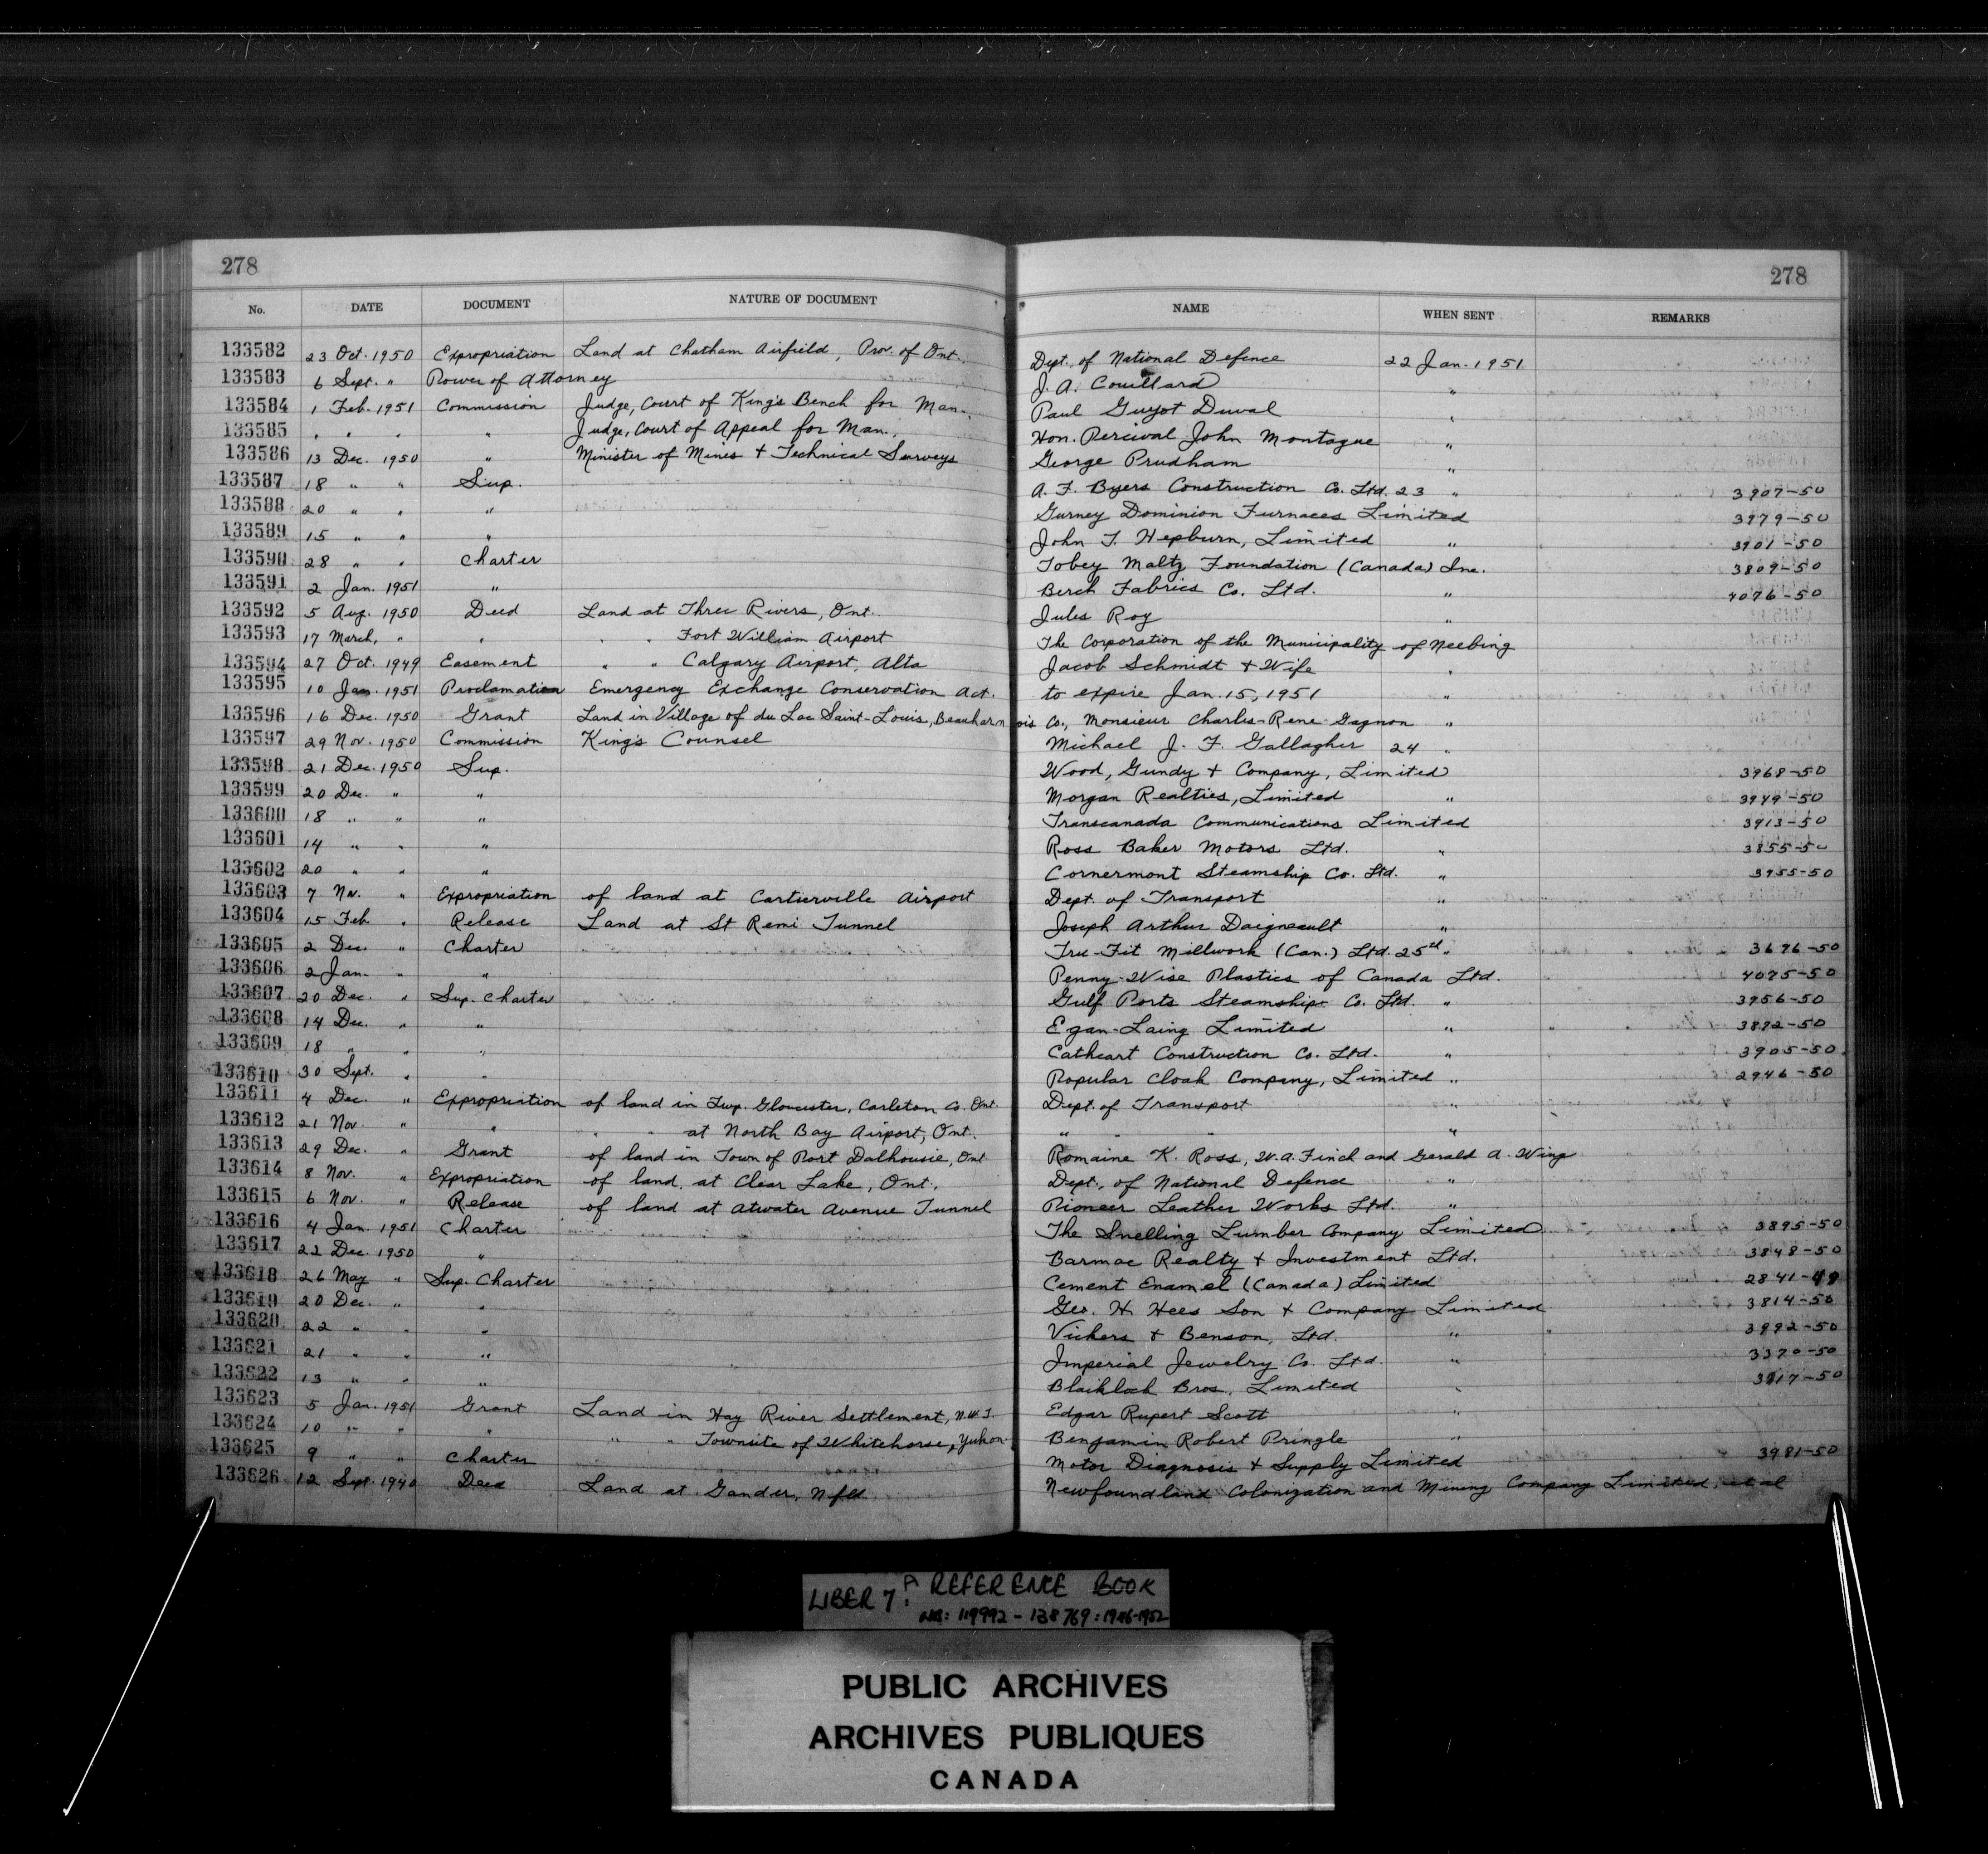 278 278
No. DATE DOCUMENT NATURE OF DOCUMENT NAME WHEN SENT REMARKS
133582 23 Oct. 1950 Expropriation Land at Chatham Airfield, Prov. of Ont. Dept. of National Defence 22 Jan. 1951
133583 6 Sept. " Power of Attorney J. A. Couillard "
133584 1 Feb. 1951 Commission Judge, Court of King's Bench for Man. Paul Guyot Duval "
133585 " " " " Judge, Court of Appeal for Man. Hon. Percival John Montague "
133586 13 Dec. 1950 " Minister of Mines + Technical Surveys George Prudham "
133587 18 " " Sup. A. F. Byers Construction Co. Ltd. 23 " 3907-50
133588 20 " " " Gurney Dominion Furnaces Limited 3979-50
133589 15 " " " John T. Hepburn, Limited " 3901-50
133590 28 " " Charter Tobey Maltz Foundation (Canada) Inc. 3809-50
133591 2 Jan. 1951 " Berch Fabrics Co. Ltd. " 4076-50
133592 5 Aug. 1950 Deed Land at Three Rivers, Ont. Jules Roy "
133593 17 March, " " " " Fort William Airport The Corporation of the Municipality of Neebing
133594 27 Oct. 1949 Easement " " Calgary Airport, Alta Jacob Schmidt + Wife "
133595 10 Jan. 1951 Proclamation Emergency Exchange Conservation Act. to expire Jan. 15, 1951 "
133596 16 Dec. 1950 Grant Land in Village of du Lac Saint-Louis, Beauharnois Co., Monsieur Charles-Rene Gagnon "
133597 29 Nov. 1950 Commission King's Counsel Michael J. F. Gallagher 24 "
133598 21 Dec. 1950 Sup. Wood, Gundy + Company, Limited 3968-50
133599 20 Dec. " " Morgan Realties, Limited " 3949-50
133600 18 " " " Transcanada Communications Limited 3913-50
133601 14 " " " Ross Baker Motors Ltd. " 3855-50
133602 20 " " " Cornermont Steamship Co. Ltd. " 3955-50
133603 7 Nv. " Expropriation of land at Cartierville Airport Dept. of Transport "
133604 15 Feb. " Release Land at St Remi Tunnel Joseph Arthur Daigneault "
133605 2 Dec. " Charter Tru-Fit Millwork (Can.) Ltd. 25 " 3676-50
133606 2 Jan. " " Penny-Wise Plastics of Canada Ltd. 4075-50
133607 20 Dec. " Sup. Charter Gulf Ports Steamship Co. Ltd. " 3956-50
133608 14 Dec. " " Egan-Laing Limited " 3892-50
133609 18 " " " Cathcart Construction Co. Ltd. " 3905-50
133610 30 Sept. " " Popular Cloak Company, Limited " 2946-50
133611 4 Dec. " Expropriation of land in Twp. Gloucester, Carleton Co. Ont. Dept. of Transport "
133612 21 Nov. " " " " at North Bay Airport, Ont. " " " "
133613 29 Dec. " Grant of land in Town of Port Dalhousie, Ont Romaine K. Ross, W.A. Finch and Gerald A. Wing
133614 8 Nov. " Expropriation of land at Clear Lake, Ont. Dept. of National Defence "
133615 6 Nov. " Release of land at Atwater Avenue Tunnel Pioneer Leather Works Ltd. "
133616 4 Jan. 1951 Charter The Snelling Lumber Company Limited 3895-50
133617 22 Dec. 1950 " Barmac Realty + Investment Ltd. 3848-50
133618 26 May " Sup. Charter Cement Enamel (Canada) Limited 2841-49
133619 20 Dec. " " Geo. H. Hees Son + Company Limited 3814-50
133620 22 " " " Vickers + Benson, Ltd. " 3992-50
133621 21 " " " Imperial Jewelry Co. Ltd. " 3370-50
133622 13 " " " Blaiklock Bros. Limited " -50
133623 5 Jan. 1951 Grant Land in Hay River Settlement, N.W.T. Edgar Rupert Scott "
133624 10 " " " " " Townsite of Whitehorse, Yukon Benjamin Robert Pringle "
133625 9 " " Charter Motor Diagnosis + Supply Limited 3981-50
133626 12 Sept. 1940 Deed Land at Gander, Nfld. Newfoundland Colonization and Mining Company Limited, et al
LIBER 7A: REFERENCE BOOK
NO: 119992 - 138769: 1946-1952
PUBLIC ARCHIVES
ARCHIVES PUBLIQUES
CANADA